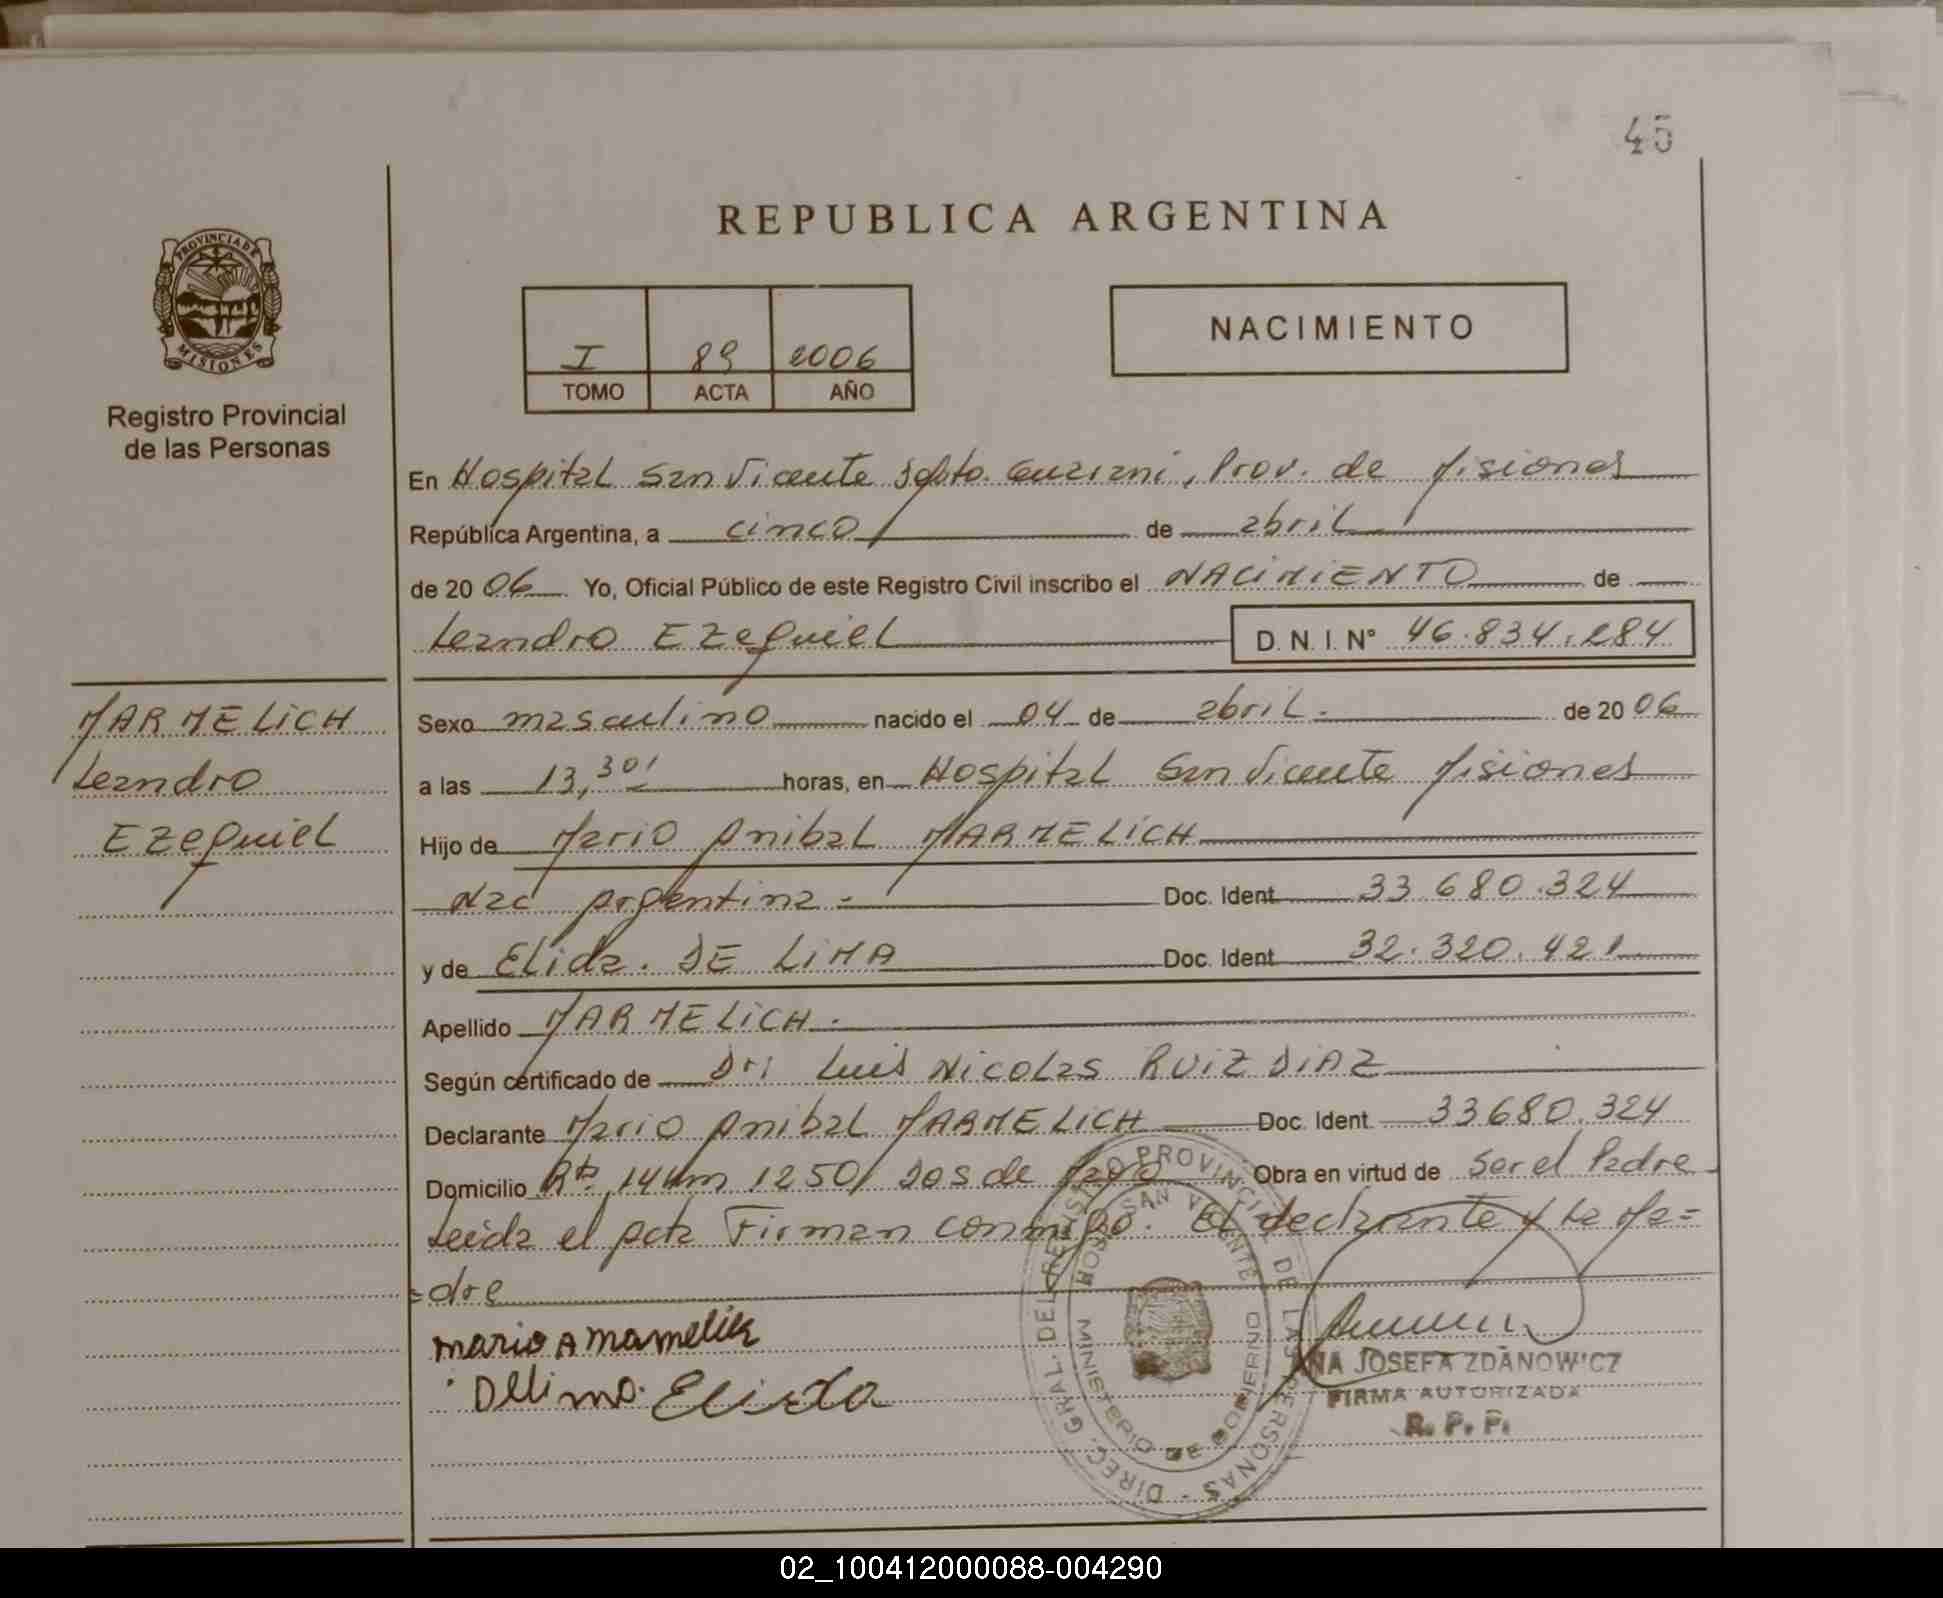 45
REPUBLICA ARGENTINA
PROVINCIA DE
MISIONES
Registro Provincial
de las Personas
I 89 2006
TOMO ACTA AÑO
NACIMIENTO
En Hospital San Vicente Dpto. Guarani, Prov. de Misiones
República Argentina, a cinco de abril
de 2006 Yo, Oficial Público de este Registro Civil inscribo el NACIMIENTO de
Leandro EZequiel D.N.I. Nº 46.834.284
MARMELICH
Leandro
EZequiel
Sexo masculino nacido el 04 de abril. de 2006
a las 13,30' horas, en Hospital San Vicente Misiones
Hijo de Mario Anibal MARMELICH
Nac Argentina - Doc. Ident 33.680.324
y de Elida. DE LIMA Doc. Ident 32.320.421
Apellido MARMELICH.
Según certificado de Dr: Luis Nicolas RUIZ DIAZ
Declarante Mario Anibal MARMELICH Doc. Ident. 33680.324
Domicilio Rta 14 km 1250/ Dos de Mayo Obra en virtud de Ser el Padre
Leida el Acta Firman conmigo. El declarante y La Ma=
=dre
mario A mamelik
Delima. Elida
DIREC. GRAL. DEL REGISTRO PROVINCIAL DE LAS PERSONAS -
HOSP. SAN VICENTE
MINISTERIO DE GOBIERNO
NA JOSEFA ZDANOWICZ
FIRMA AUTORIZADA
R. P. P.
02_100412000088-004290